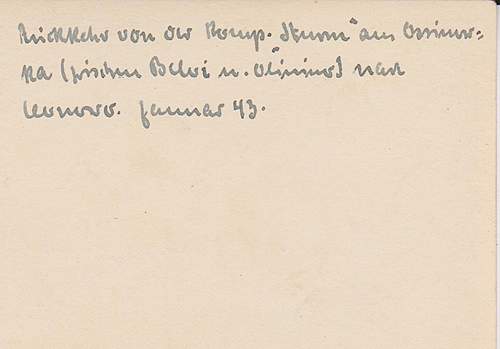 Rückkehr von der Komp. "Sturm" aus Ossinow-
ka (zwischen Beloi u. Olinino) nach
Januar 43.